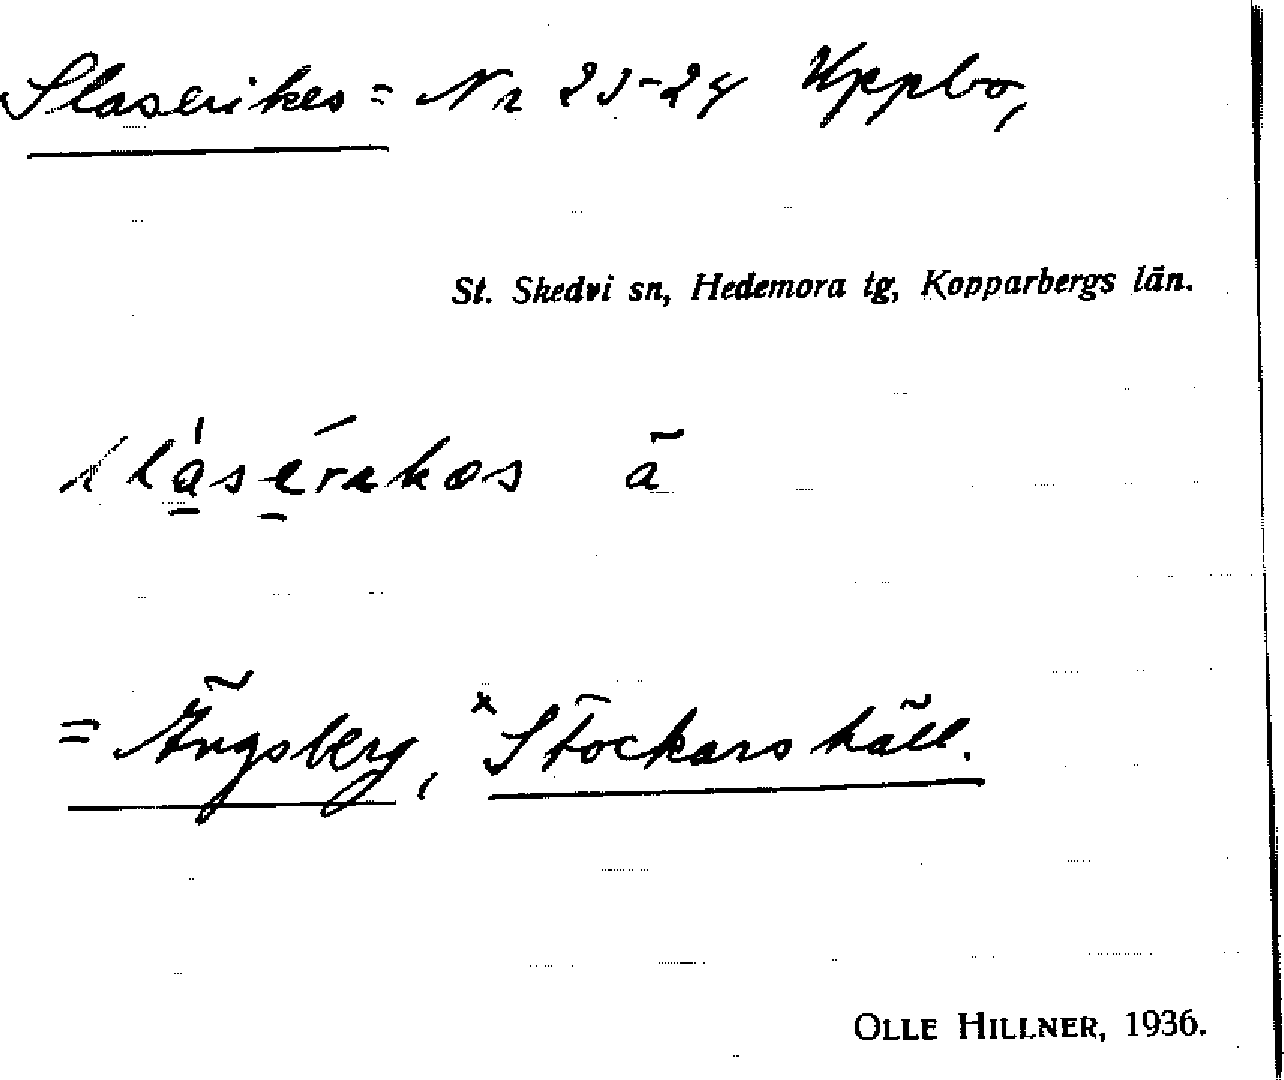 Slaserikes = Nr 23-24 Uppbo,
St. Skedvi sn, Hedemora tg, Kopparbergs län.
ä
= Ängsberg, × Stockarshäll.
OLLE HILLNER, 1936.